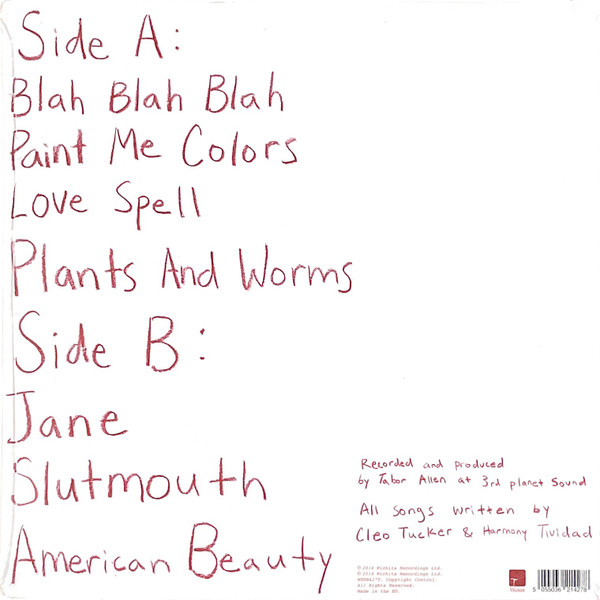 Side A:
Blah Blah Blah
Paint Me Colors
Love Spell
Plants And Worms
Side B:
Jane
Slutmouth
American Beauty
Recorded and produced
by Tabor Allen at 3rd planet Sound
All songs written by
Cleo Tucker & Harmony Tividad
℗ 2014 Wichita Recordings Ltd.
© 2014 Wichita Recordings Ltd.
Copyright Control.
All Rights Reserved.
Made in the EU.
Wichita
5 055036 214278